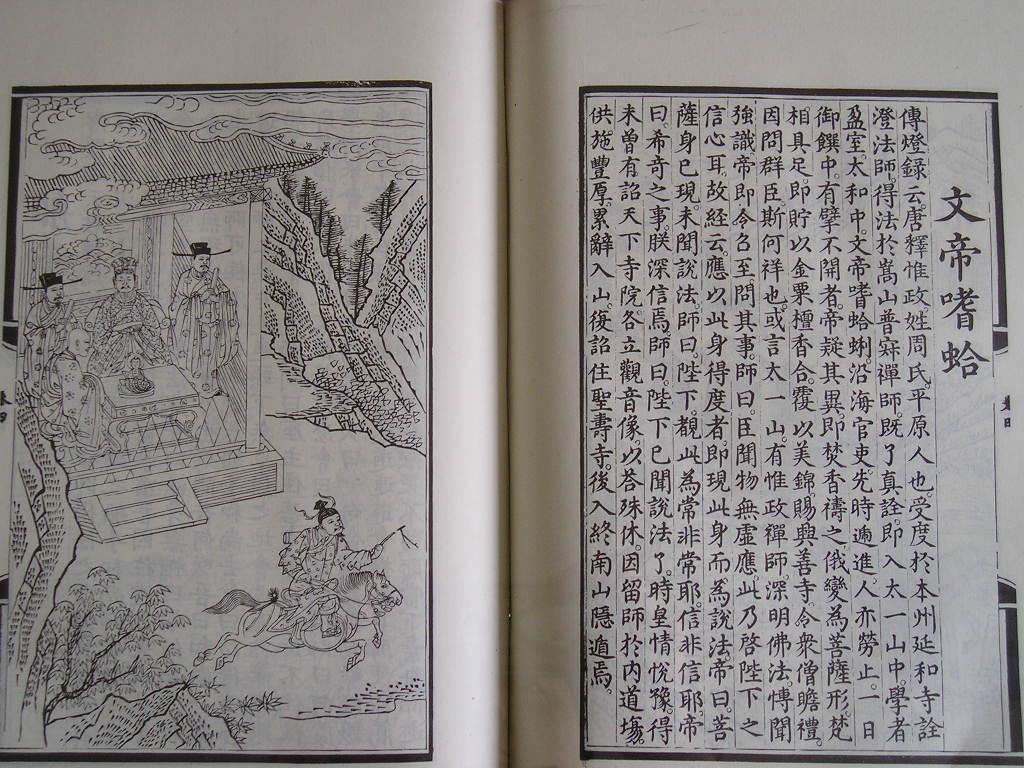 文帝嗜蛤
傳燈錄云唐釋惟政姓周氏平原人也受度於本州延和寺詮
澄法師得法於嵩山普寂禪師既了真詮即入太一山中學者
盈室太和中文帝嗜蛤蜊沿海官吏先時遞進人亦勞止一日
御饌中有擘不開者帝疑其異即焚香禱之俄變為菩薩形梵
相具足即貯以金粟檀香合覆以美錦賜興善寺令眾僧瞻禮
因問群臣斯何祥也或言太一山有惟政禪師深明佛法慱聞
強識帝即令召至問其事師曰臣聞物無虛應此乃啓陛下之
信心耳故經云應以此身得度者即現此身而為說法帝曰菩
薩身已現未聞說法師曰陛下覩此為常非常耶信非信耶帝
曰希奇之事朕深信焉師曰陛下已聞說法了時皇情悅豫得
未曾有詔天下寺院各立觀音像以荅殊休因留師於內道場
供施豐厚累辭入山復詔住聖壽寺後入終南山隱遁焉
卷四